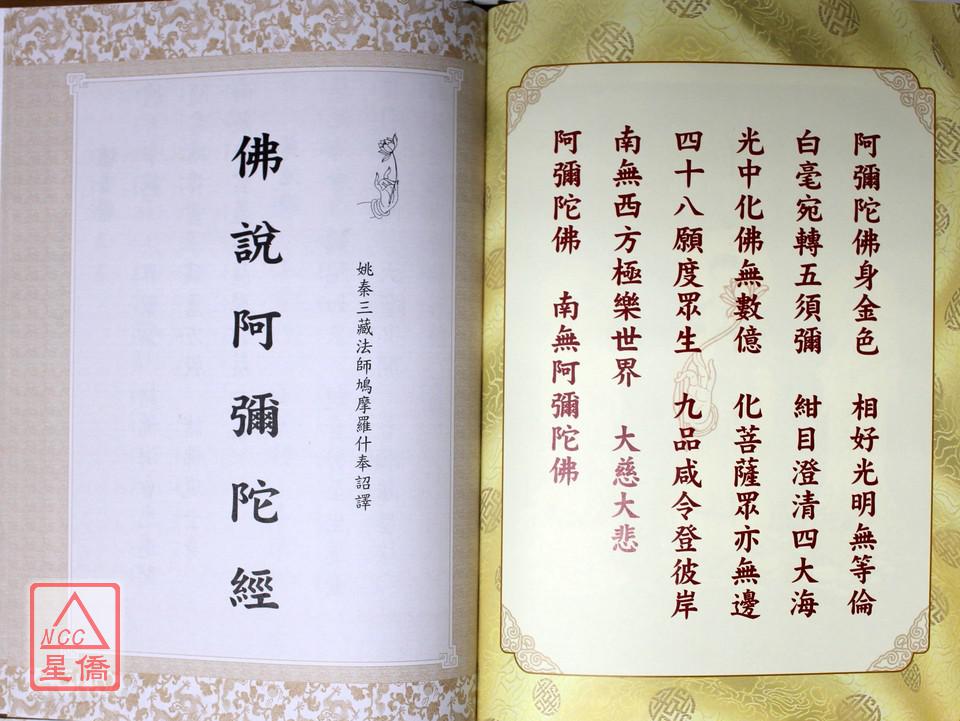 阿彌陀佛身金色　相好光明無等倫
白毫宛轉五須彌　紺目澄清四大海
光中化佛無數億　化菩薩眾亦無邊
四十八願度眾生　九品咸令登彼岸
南無西方極樂世界　大慈大悲
阿彌陀佛　南無阿彌陀佛
姚秦三藏法師鳩摩羅什奉詔譯
佛說阿彌陀經
NCC
星僑